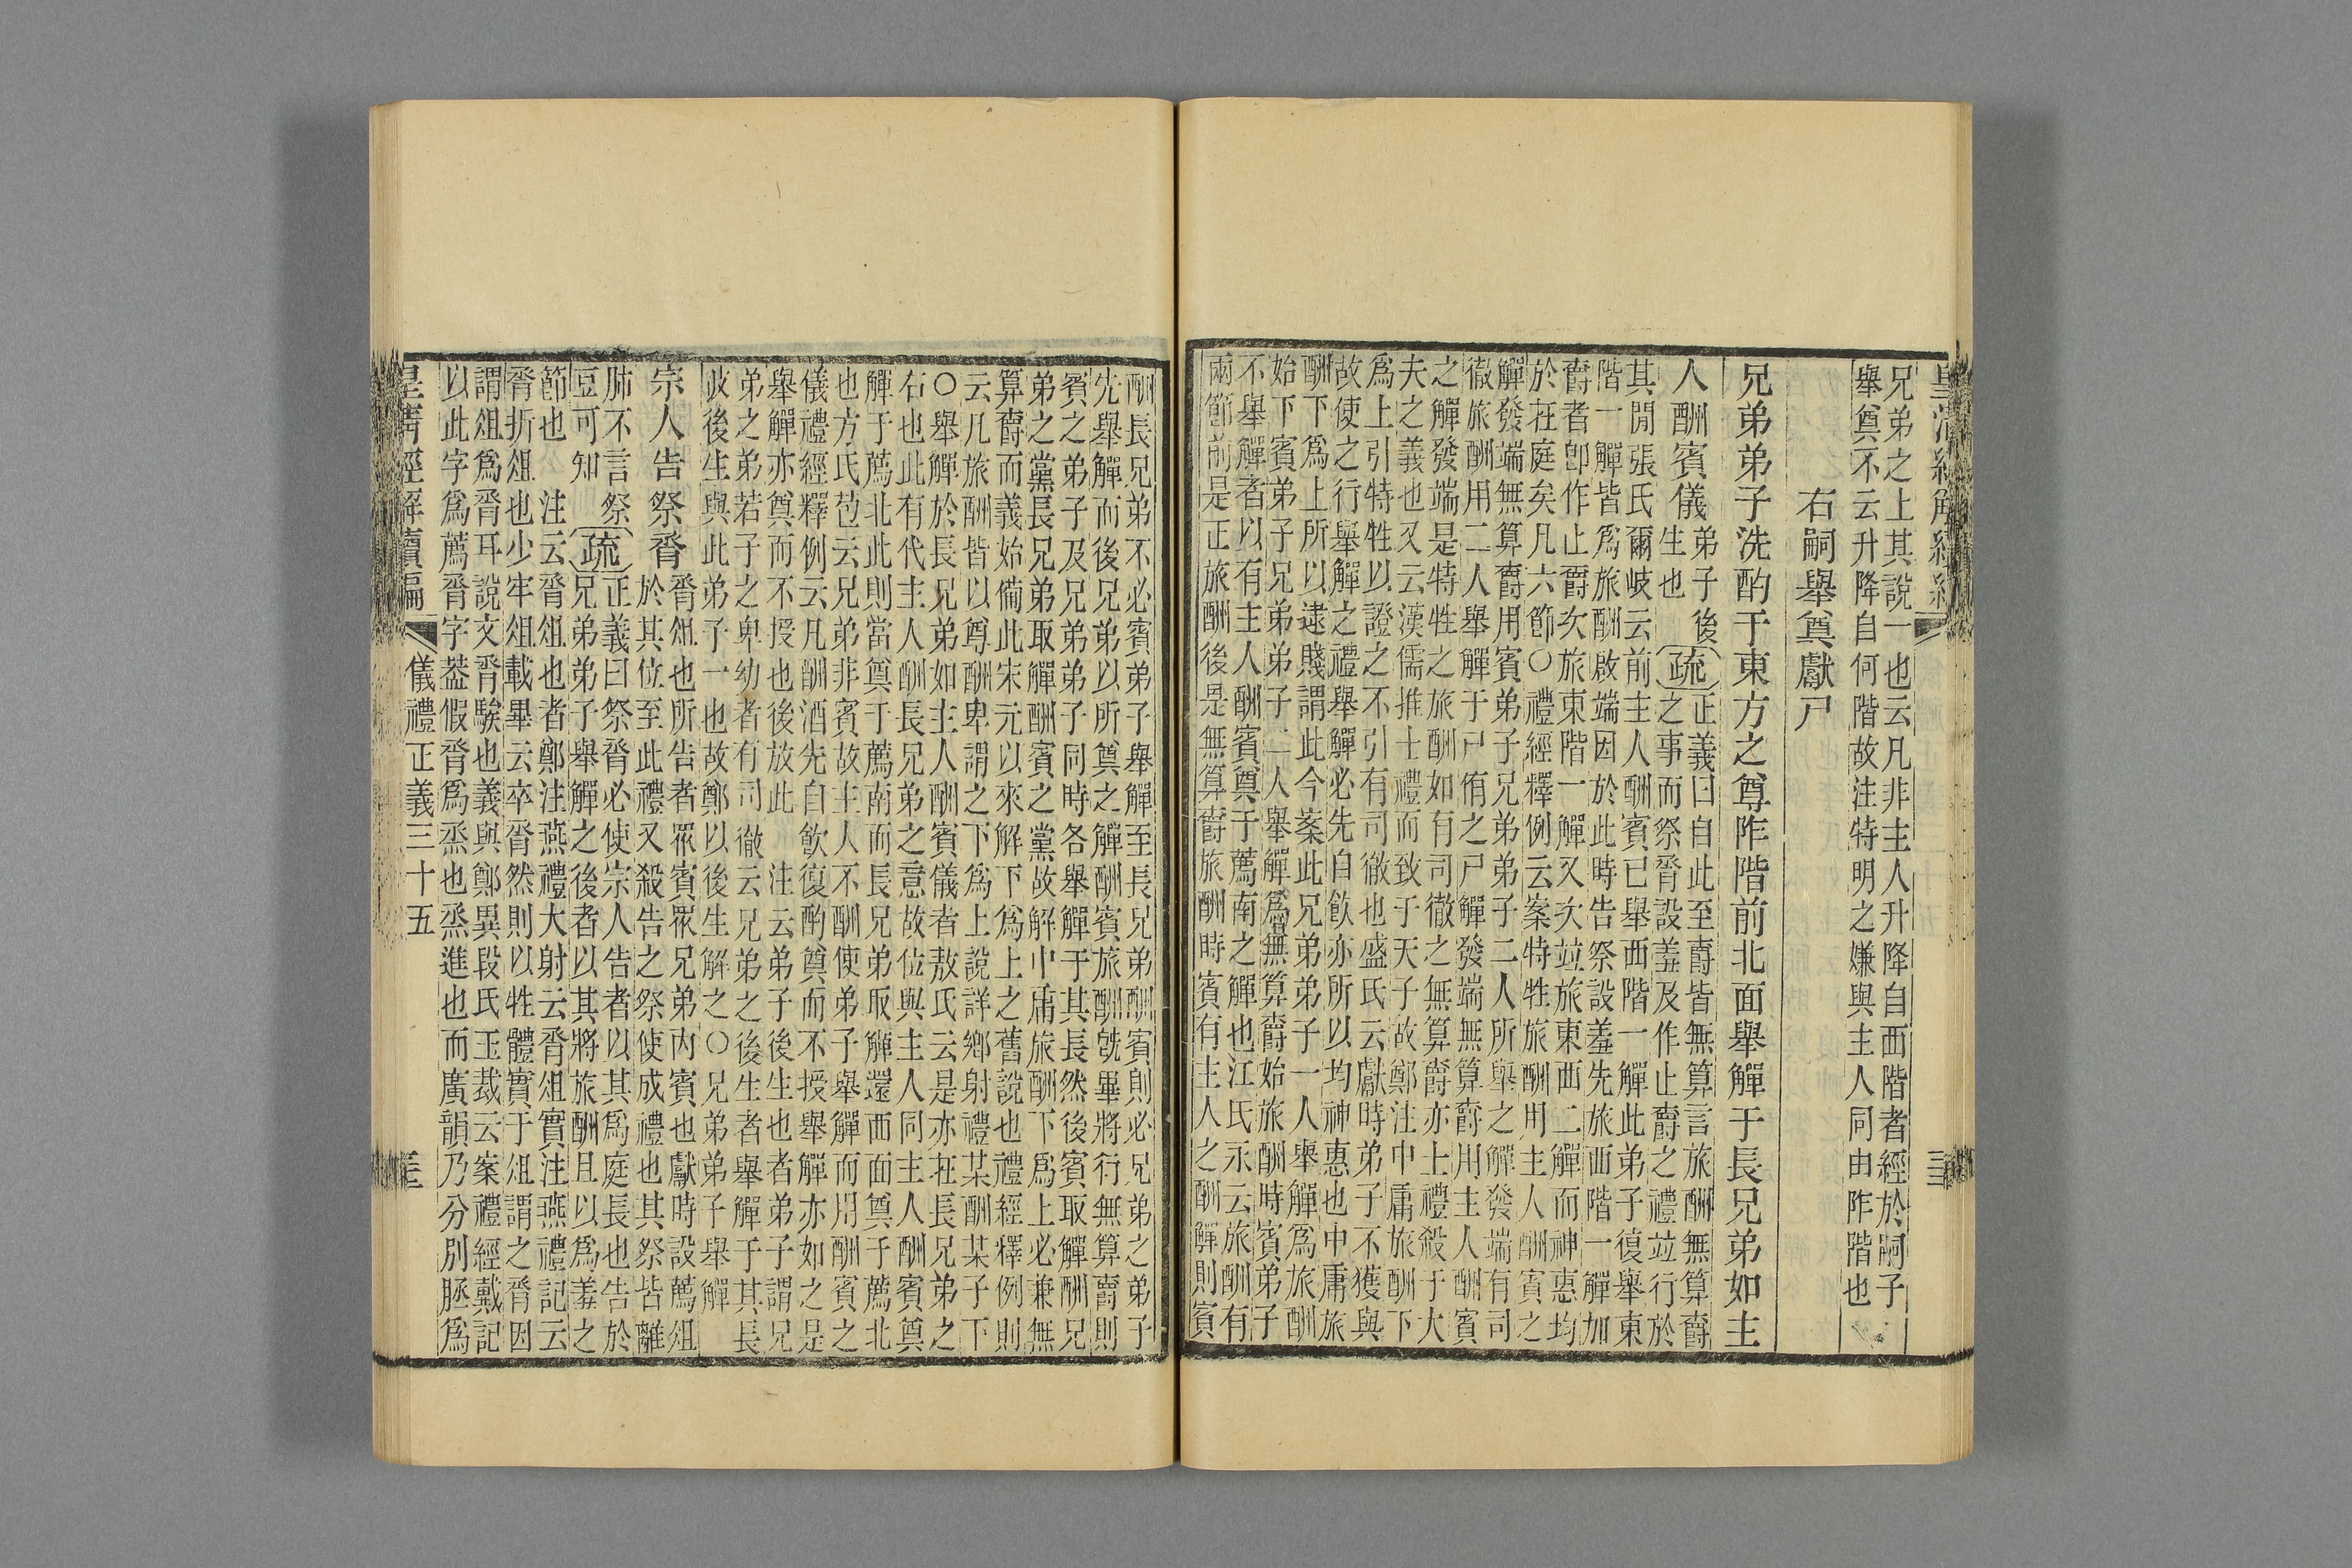 兄弟之上其說一也云凡非主人升降自西階者經於嗣子
舉奠不云升降自何階故注特明之嫌與主人同由阼階也
右嗣舉奠獻尸
兄弟弟子洗酌于東方之尊阼階前北面舉觶于長兄弟如主
人酬賓儀
弟子後
生也
疏
正義曰自此至爵皆無算言旅酬無算爵
之事而祭脀設羞及作止爵之禮竝行於
其閒張氏爾岐云前主人酬賓已舉西階一觶此弟子復舉東
階一觶皆爲旅酬啟端因於此時告祭設羞先旅西階一觶加
爵者卽作止爵次旅東階一觶又次竝旅東西二觶而神惠均
於在庭矣凡六節○禮經釋例云案特牲旅酬用主人酬賓之
觶發端無算爵用賓弟子兄弟弟子二人所舉之觶發端有司
徹旅酬用二人舉觶于尸侑之尸觶發端無算爵用主人酬賓
之觶發端是特牲之旅酬如有司徹之無算爵亦上禮殺于大
夫之義也又云漢儒推士禮而致于天子故鄭注中庸旅酬下
爲上引特牲以證之不引有司徹也盛氏云獻時弟子不獲與
故使之行舉觶之禮舉觶必先自飲亦所以均神惠也中庸旅
酬下爲上所以逮賤謂此今案此兄弟弟子一人舉觶爲旅酬
始下賓弟子兄弟弟子二人舉觶爲無算爵始旅酬時賓弟子
不舉觶者以有主人酬賓奠于薦南之觶也江氏永云旅酬有
兩節前是正旅酬後是無算爵旅酬時賓有主人之酬觶則賓
酬長兄弟不必賓弟子舉觶至長兄弟酬賓則必兄弟之弟子
先舉觶而後兄弟以所奠之觶酬賓旅酬旣畢將行無算爵則
賓之弟子及兄弟弟子同時各舉觶于其長然後賓取觶酬兄
弟之黨長兄弟取觶酬賓之黨故解中庸旅酬下爲上必兼無
算爵而義始備此宋元以來解下爲上之舊說也禮經釋例則
云凡旅酬皆以尊酬卑謂之下爲上說詳鄉射禮某酬某子下
○舉觶於長兄弟如主人酬賓儀者敖氏云是亦在長兄弟之
右也此有代主人酬長兄弟之意故位與主人同主人酬賓奠
觶于薦北此則當奠于薦南而長兄弟取觶還西面奠于薦北
也方氏苞云兄弟非賓故主人不酬使弟子舉觶而用酬賓之
儀禮經釋例云凡酬酒先自飲復酌奠而不授舉觶亦如之是
舉觶亦奠而不授也後放此　注云弟子後生也者弟子謂兄
弟之弟若子之卑幼者有司徹云兄弟之後生者舉觶于其長
彼後生與此弟子一也故鄭以後生解之○兄弟弟子舉觶
宗人告祭脀
脀俎也所告者眾賓眾兄弟內賓也獻時設薦俎
於其位至此禮又殺告之祭使成禮也其祭皆離
肺不言祭
豆可知
疏
正義曰祭脀必使宗人告者以其爲庭長也告於
兄弟弟子舉觶之後者以其將旅酬且以爲羞之
節也　注云脀俎也者鄭注燕禮大射云脀俎實注燕禮記云
脀折俎也少牢俎載畢云卒脀然則以牲體實于俎謂之脀因
謂俎爲脀耳說文脀騃也義與鄭異段氏玉裁云案禮經戴記
以此字爲薦脀字葢假脀爲烝也烝進也而廣韻乃分別脀爲
皇淸經解續編
儀禮正義三十五